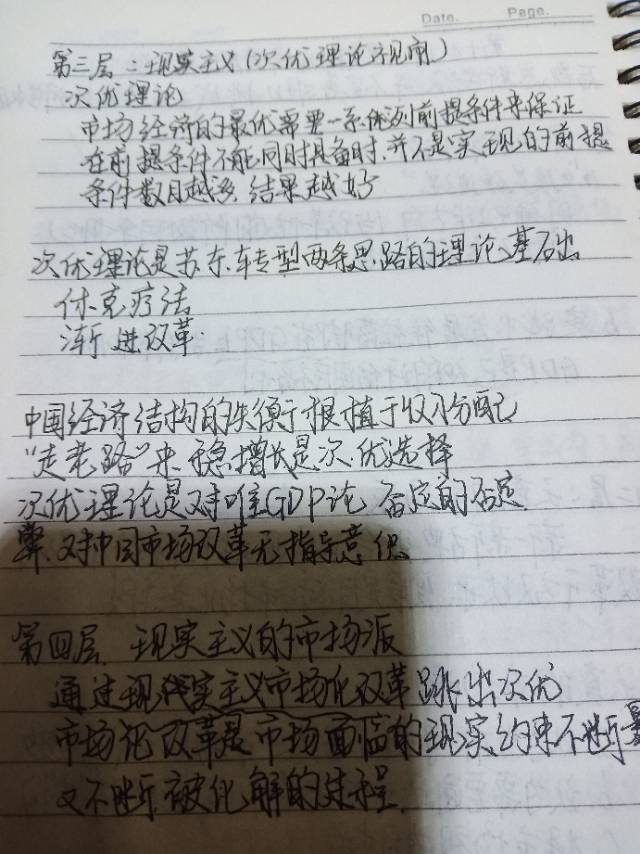 Date. Page.
第三层:现实主义(次优理论视角)
次优理论
市场经济的最优需要一系列前提条件来保证
在前提条件不能同时具备时,并不是实现的前提
条件数目越多,结果越好
次优理论是苏东、车专型两条思路的理论基础
休克疗法
渐进改革.
中国经济结构的失衡于根植于收入分配
“走老路”来稳增长是次优选择
次优理论是对唯GDP论否定的否定
弊.对中国市场改革无指导意识
第四层.现实主义的市场派
通过现实主义市场化改革跳出次优
市场化改革是市场面临的现实约束不断
又不断被化解的过程.